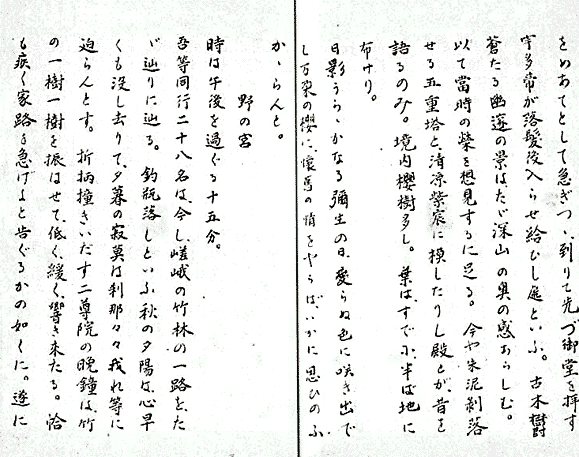 をめあてとして急ぎつゝ、到りて先づ御堂を拝す
宇多帝が落髮後入らせ給ひし庭といふ。古木欝
蒼たる幽邃の景はたゞ深山の奥の感あらしむ。
以て當時の榮を想見するに足る。今や朱泥剥落
せる五重塔と、清凉紫宸に模したりし殿とが、昔を
語るのみ。境内櫻樹多し。葉は、すでに、半ば地に
布けり。
日影うらゝかなる彌生の日、変らぬ色に咲き出で
し万朶の櫻に、懷舊の情をやらば、いかに思ひのふ
かゝらんと。
野の宮
時は午後を過ぐる十五分。
吾等同行二十八名は、今し、嵯峨の竹林の一路を、た
ゞ辿りに辿る。釣瓶落しといふ秋の夕陽は、心早
くも没し去りて、夕暮の寂莫は刹那々々我れ等に
迫らんとす。折柄撞きいだす二尊院の晩鐘は、竹
の一樹一樹を振はせて、低く、緩く、響き来たる。恰
も疾く家路を急げよと告ぐるかの如くに。遂に